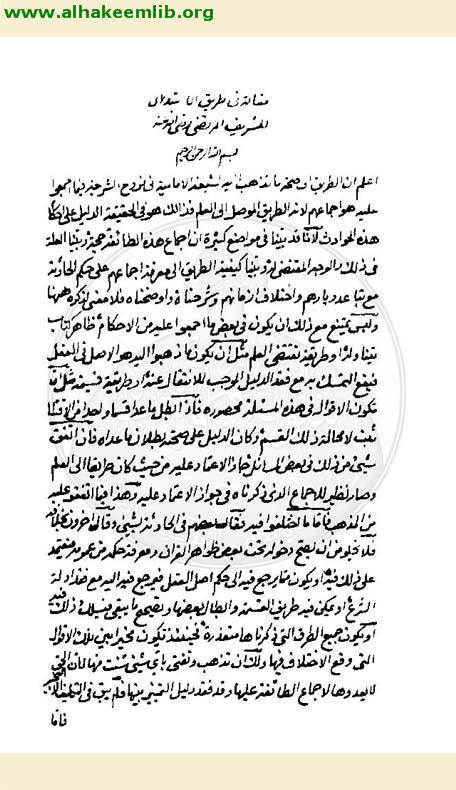 www.alhakeemlib.org
مقالة في طريق الاستدلال
للشريف المرتضى رضي الله عنه
بسم الله الرحمن الرحيم
اعلم ان الطريق الى صحة ما تذهب اليه الشيعة الامامية في فروع الشرعية فيما اجمعوا
عليه هو اجماعهم لانه الطريق الموصل الى العلم فذلك هو في الحقيقة الدليل على احكام
هذه الحوادث لانا قد بينا في مواضع كثيرة ان اجماع هذه الطائفة حجة وبينا العلة
في ذلك والوجه المقتضى له وبينا كيفية الطريق الى معرفة اجماعهم على حكم الحادثة
مع تباعد ديارهم واختلاف ازمانهم وشرحناه واوضحناه فلا معنى لذكره ههنا
وليس يمتنع مع ذلك ان يكون في بعض ما اجمعوا عليه من الاحكام ظاهر كتاب
يتناوله او طريقة تقتضى العلم مثل ان يكون ما ذهبوا اليه هو الاصل في العقل
فيقع التمسك به مع فقد الدليل الموجب للانتقال عنه او طريقة قسمة مثل ان
تكون الاقوال في هذه المسئلة محصورة فاذا بطل ما عدا قسما واحدا من الاقسام
ثبت لا محالة ذلك القسم وكان الدليل على صحته بطلان ما عداه فان اتفق
شيء من ذلك في بعض المسائل جاز الاعتماد عليه من حيث كان طريقا الى العلم
وصار نظير للاجماع الذي ذكرناه في جواز الاعتماد عليه وهذا فيما اتفقوا عليه
من المذهب فاما ما اختلفوا فيه فقال بعضهم في الحادثة بشيء وقال اخرون بخلافه
فلا يخلو من ان يصح دخوله تحت بعض ظواهر القران ومعرفة حكمه من عمومه فيعتمد
على ذلك فيه او يكون مما يرجع فيه الى حكم اصل العقل فيرجع فيه اليه مع فقد ادلة
الشرع او يمكن فيه طريق القسمة وابطال بعضها وتصحيح ما يبقى فيسلك ذلك فيه
او يكون جميع الطرق التي ذكرناها متعذرة فحينئذ تكون مخيرا بين تلك الاقوال
التي وقع الاختلاف فيها ولك ان تذهب وتفتى باي شيء شئت منها لان الحق
لا يعدوها لاجماع الطائفة عليها وقد فقد دليل التمييز بينها فلم يبق في التكليف الا التخيير
فاما